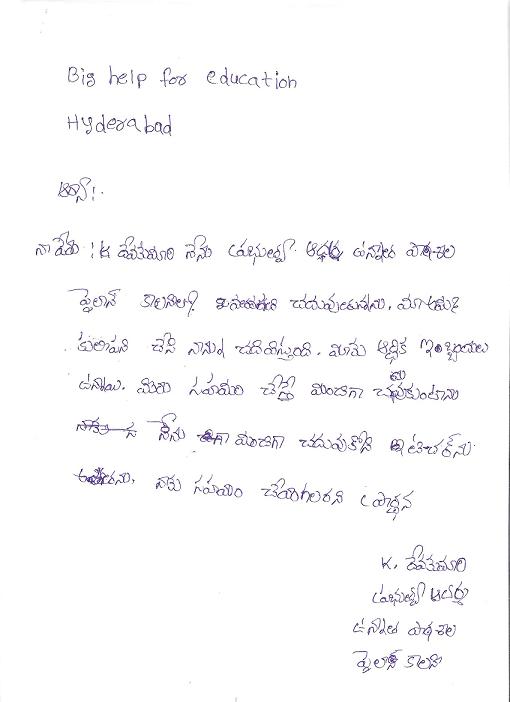 Big help for education
Hyderabad
ఆర్యా!.
నా పేరు : K దేవకుమారి నేను ప్రభుత్వ ఆదర్శ ఉన్నత పాఠశల
పైలాన్ కాలనిలో చదువుతున్నాను. మా అమ్మ
కులిపని చేసి నాన్ను చదివిస్తుంది. మాకు ఆర్ధిక ఇబ్బందులు
ఉన్నాయి. మీరు సహయం చేస్తే మంచిగా చదువుకుంటాను
నేను మంచిగా చదువుకోని టీచర్‌ను
నాకు సహయం చేయగలరని ప్రార్ధన
K. దేవకుమారి
ప్రభుత్వ ఆదర్శ
ఉన్నత పాఠశల
పైలాన్ కాలని